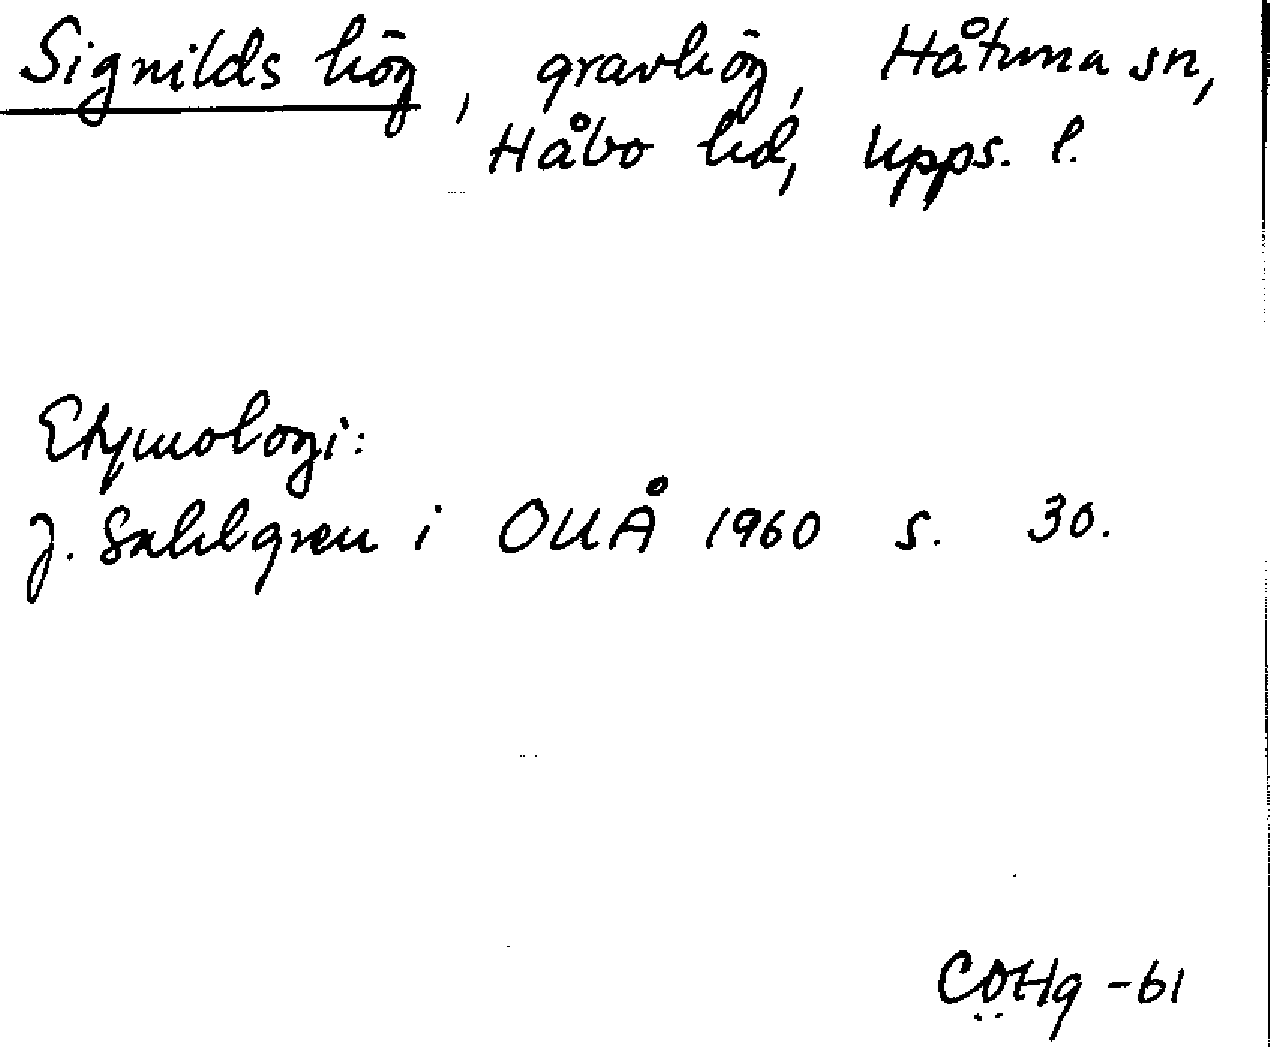 Signilds hög, gravhög, Håtuna sn,
Håbo hd, Upps. l.
Etymologi:
J. Sahlgren i OUÅ 1960 s. 30.
COHg -61